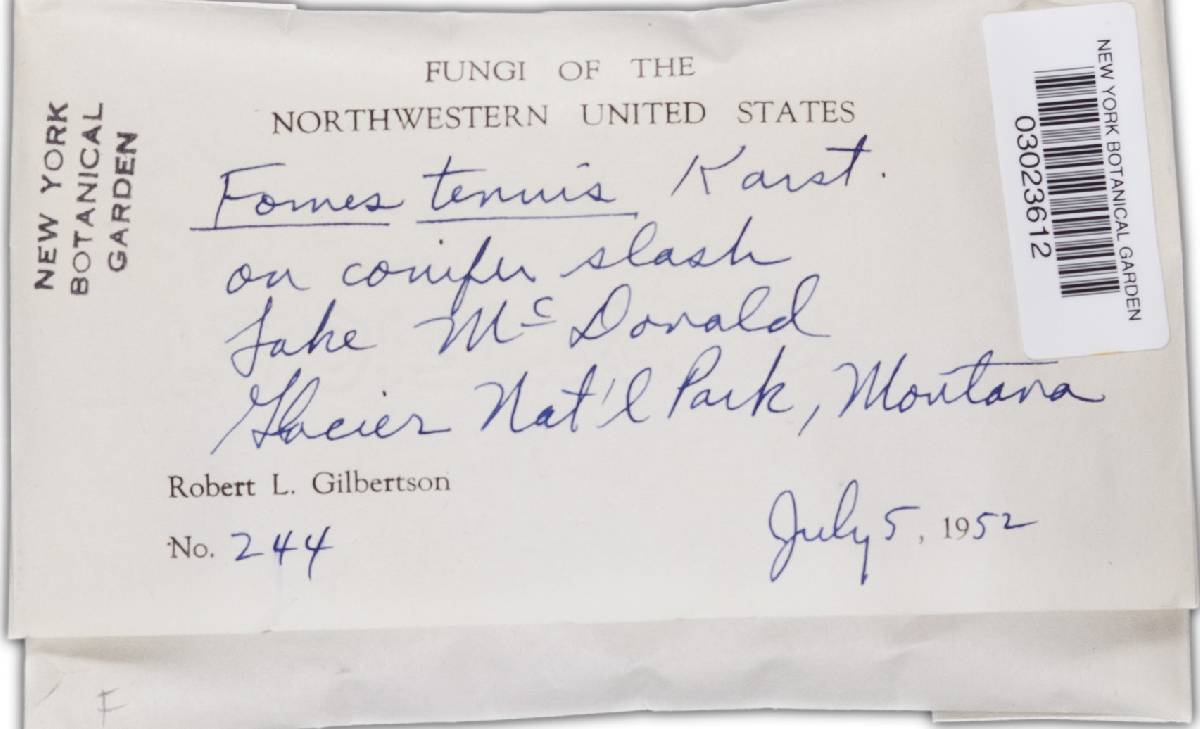 FUNGI OF THE
NORTHWESTERN UNITED STATES
Fomes tenuis Karst.
on conifer slash
Lake Mc Donald
Glacier Nat'l Park, Montana
Robert L. Gilbertson
No. 244
July 5, 1952
NEW YORK
BOTANICAL
GARDEN
NEW YORK BOTANICAL GARDEN
03023612
F